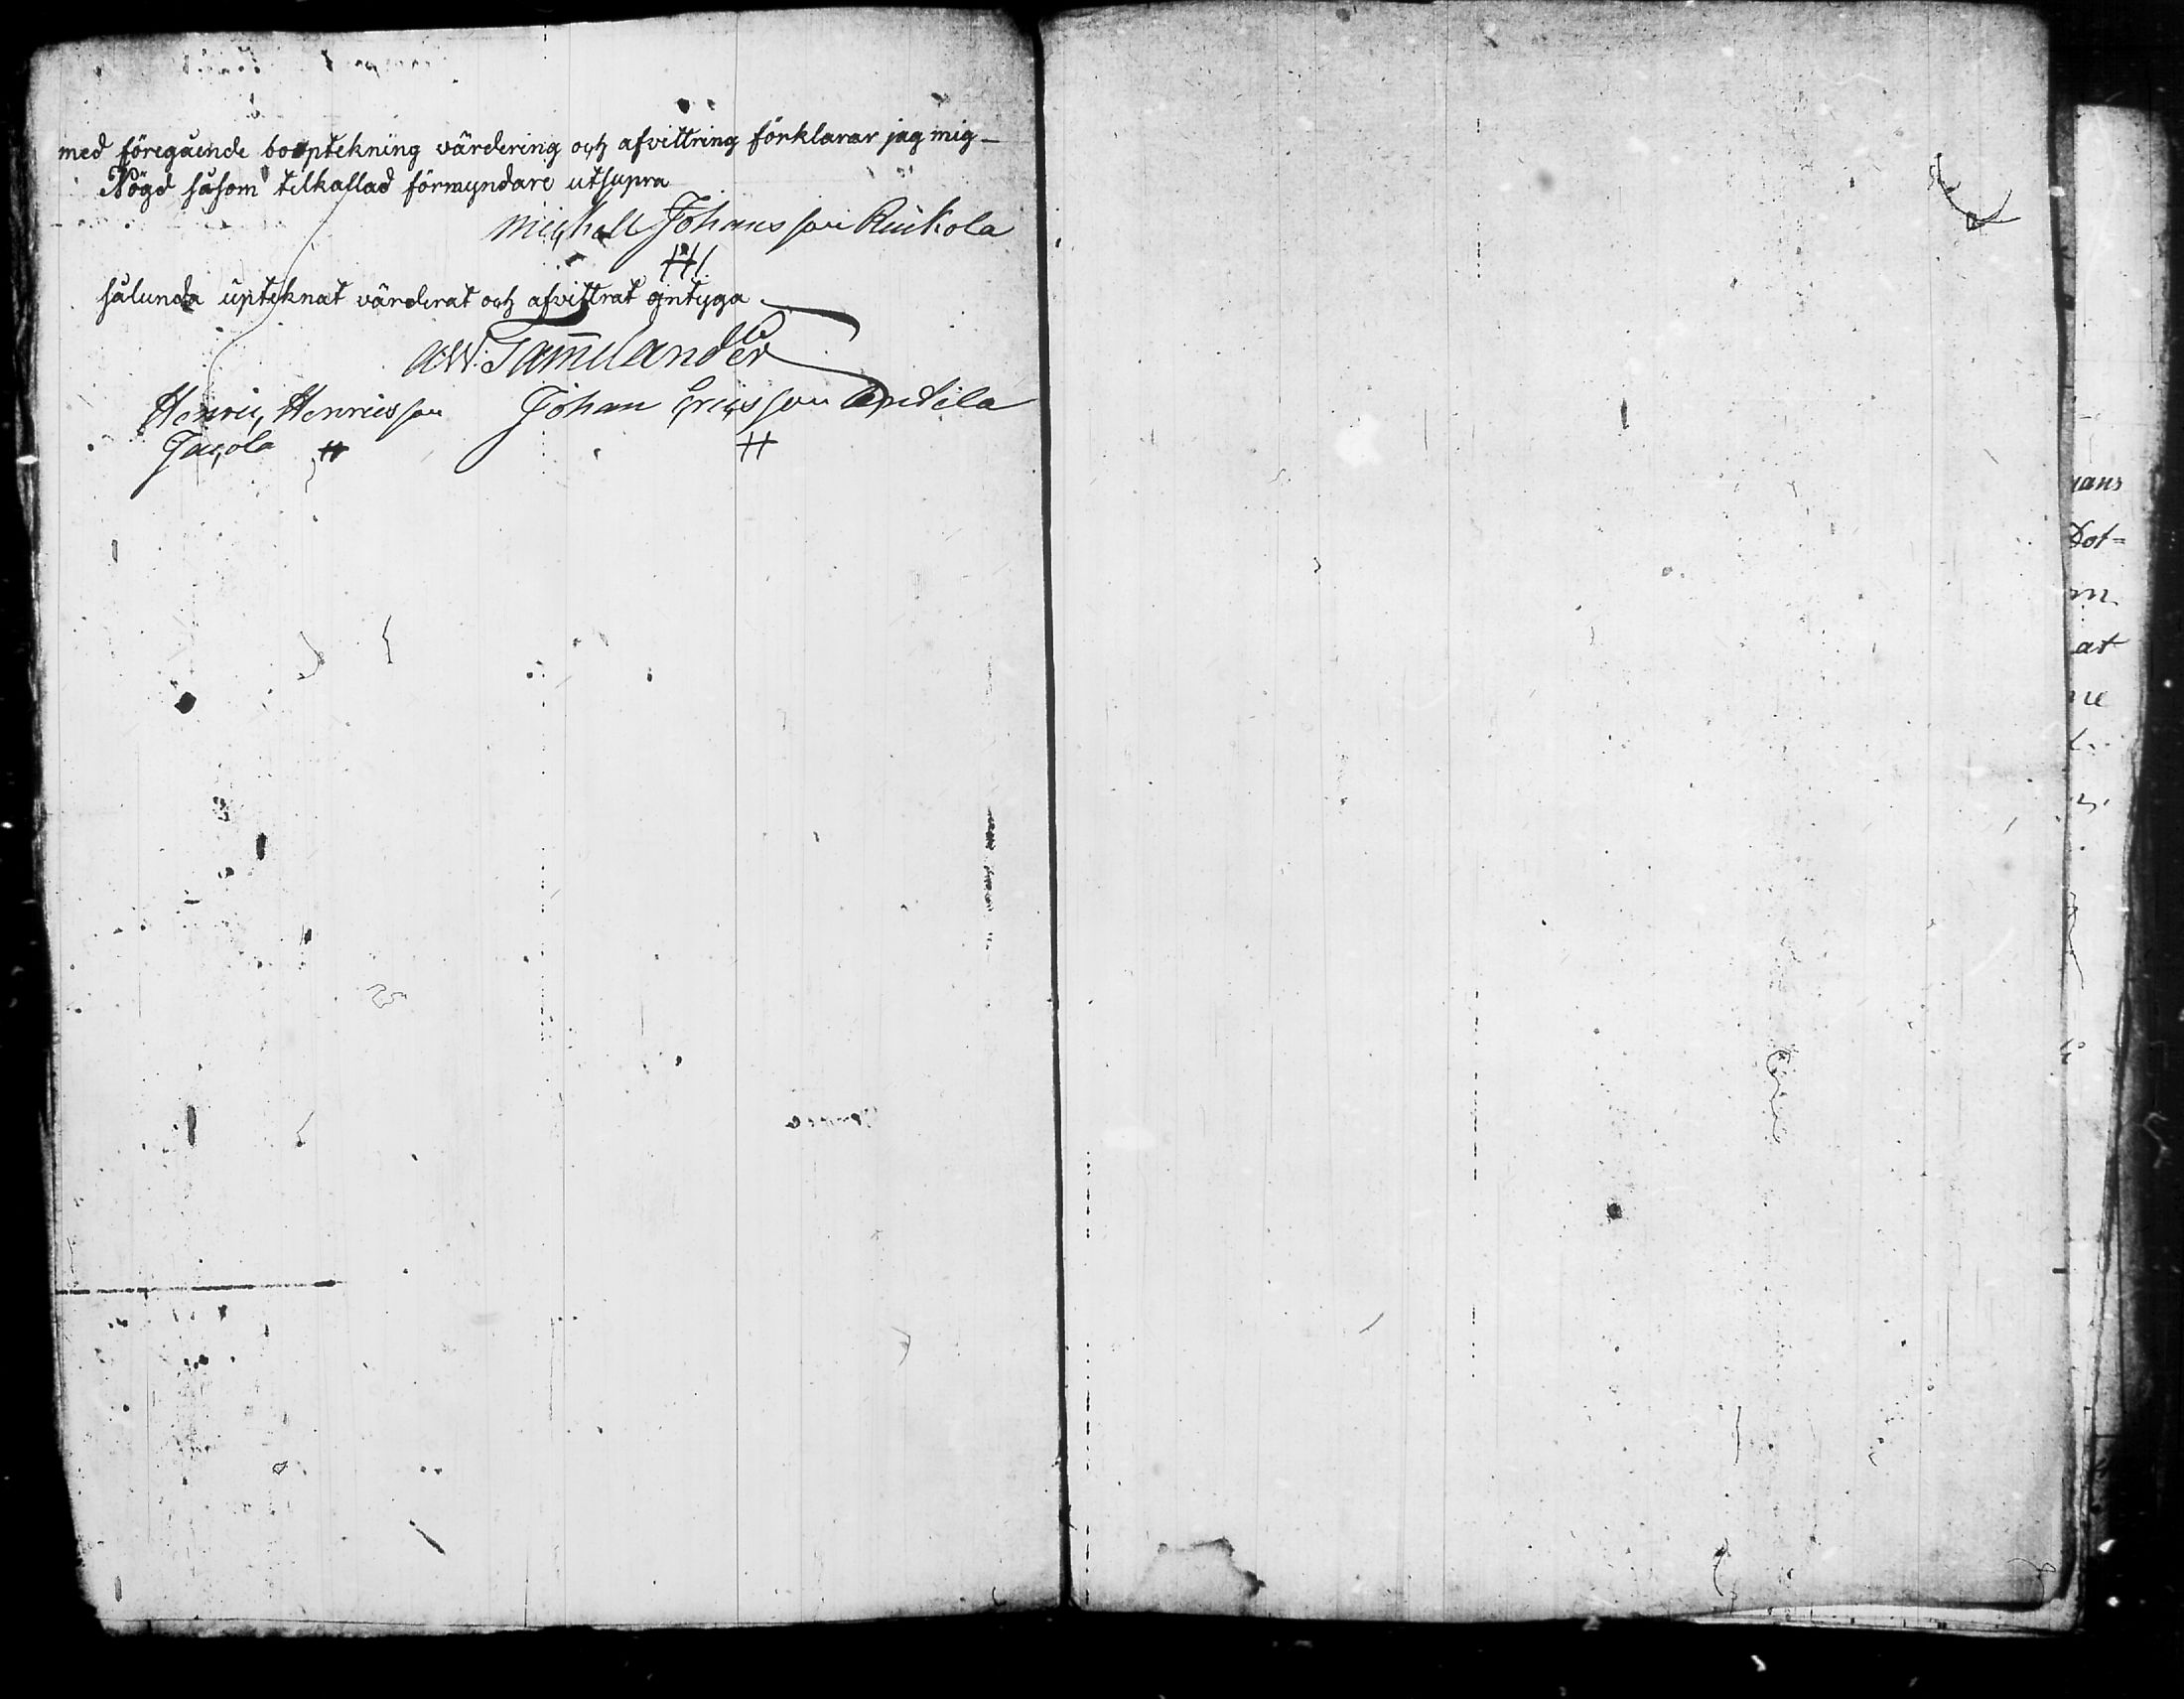 med föregående booptekning värdering och afvittring förklarar jag mig
Nögd såsom tilkallad förmyndare utsupra
Michell Johansson Ruikola
sålunda upteknat värderat och afvittrat intyga
A:W: Tamelander
Henric Henricsson Johan Ericsson Anttila
Jacola
ans
Dot=
at